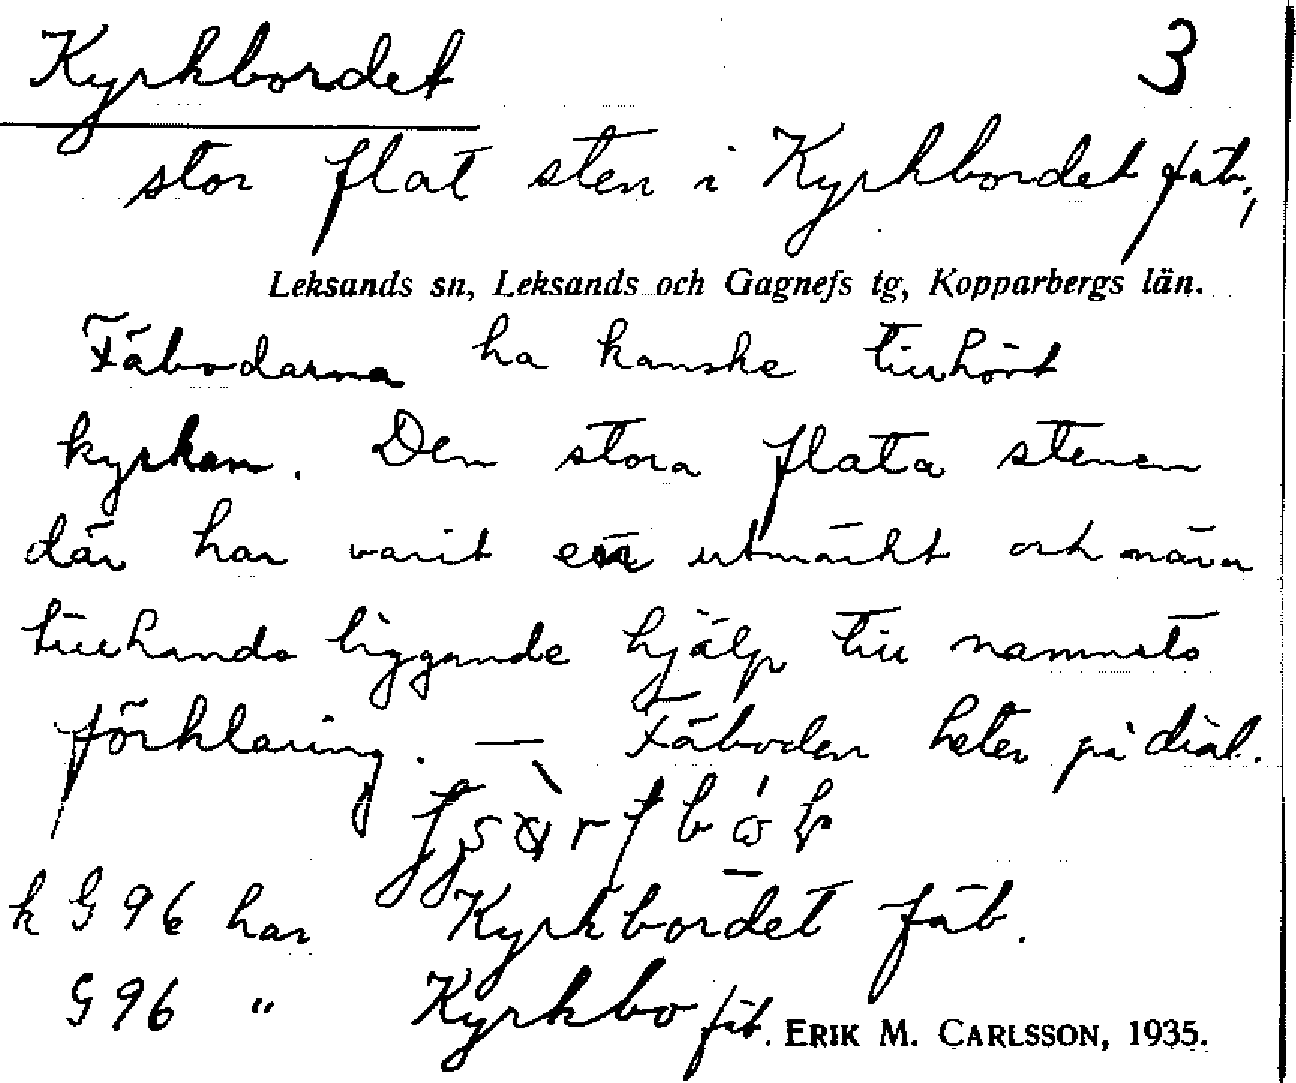 Kyrkbordet 3
stor flat sten i Kyrkbordet fäb.,
Leksands sn, Leksands och Gagnefs tg, Kopparbergs län.
Fäbodarna ha kanske tillhört
kyrkan. Den stora flata stenen
där har varit en utmärkt och nära
tillhands liggande hjälp till namnets
förklaring. — Fäboden heter på dial.
k G 96 har Kyrkbordet fäb.
G 96 " Kyrkbo fäb.
ERIK M. CARLSSON, 1935.